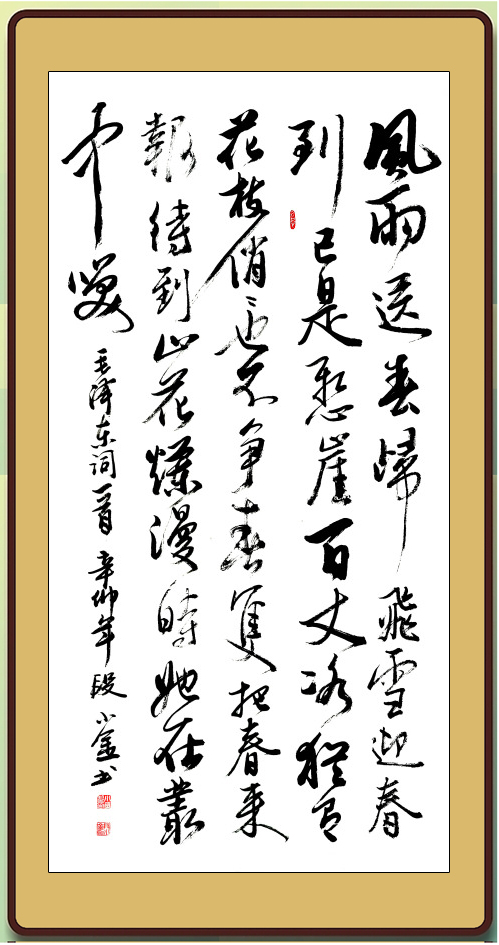 風雨送春歸飛雪迎春
到已是懸崖百丈冰猶有
花枝俏〻也不争春隻把春来
報待到山花爛漫時她在叢
中笑 毛泽东词一首 辛卯年 段小金书